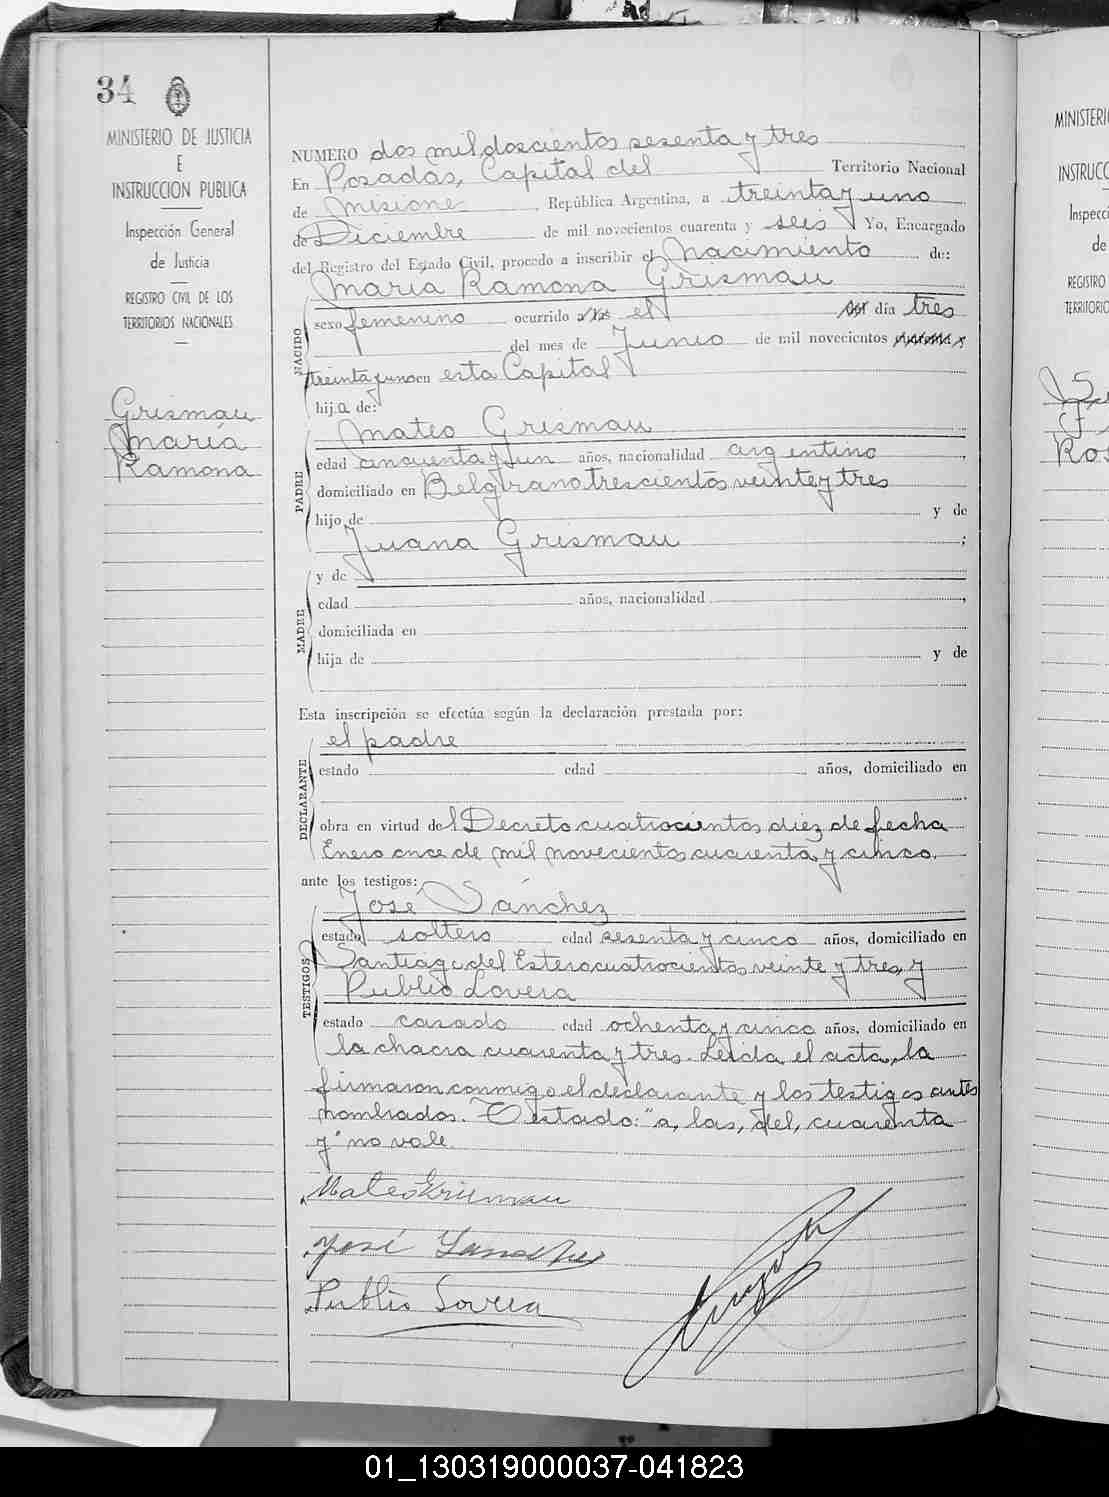 34
MINISTERIO DE JUSTICIA
E
INSTRUCCION PUBLICA
Inspección General
de Justicia
REGISTRO CIVIL DE LOS
TERRITORIOS NACIONALES
Grismau
María
Ramona
NUMERO dos mil doscientos sesenta y tres
En Posadas, Capital del Territorio Nacional
de Misiones República Argentina, a treinta y uno
de Diciembre de mil novecientos cuarenta y seis Yo, Encargado
del Registro del Estado Civil, procedo a inscribir el Nacimiento de:
María Ramona Grismau
NACIDO
sexo femenino ocurrido a las el del día tres
del mes de Junio de mil novecientos cuarenta y
treinta y uno en esta Capital
hija de:
Mateo Grismau
PADRE
edad cincuenta y un años, nacionalidad argentino
domiciliado en Belgrano trescientos veinte y tres
hijo de y de
Juana Grismau ;
MADRE
y de
edad años, nacionalidad ,
domiciliada en
hija de y de
Esta inscripción se efectúa según la declaración prestada por:
el padre
DECLARANTE
estado edad años, domiciliado en
obra en virtud del Decreto cuatrocientos diez de fecha
Enero once de mil novecientos cuarenta y cinco.
ante los testigos:
José Sánchez
TESTIGOS
estado soltero edad sesenta y cinco años, domiciliado en
Santiago del Estero cuatrocientos veinte y tres, y
Publio Lovera
estado casado edad ochenta y cinco años, domiciliado en
la chacra cuarenta y tres. Leida el acta, la
firmaron conmigo el declarante y los testigos antes
nombrados. Testado: "a, las, del, cuarenta
y" no vale.
Mateo Grismau
José Sanchez
Publio Lovera
MINISTERI
INSTRUCC
Inspecci
de
REGISTRO
TERRITORIO
Ros
01_130319000037-041823